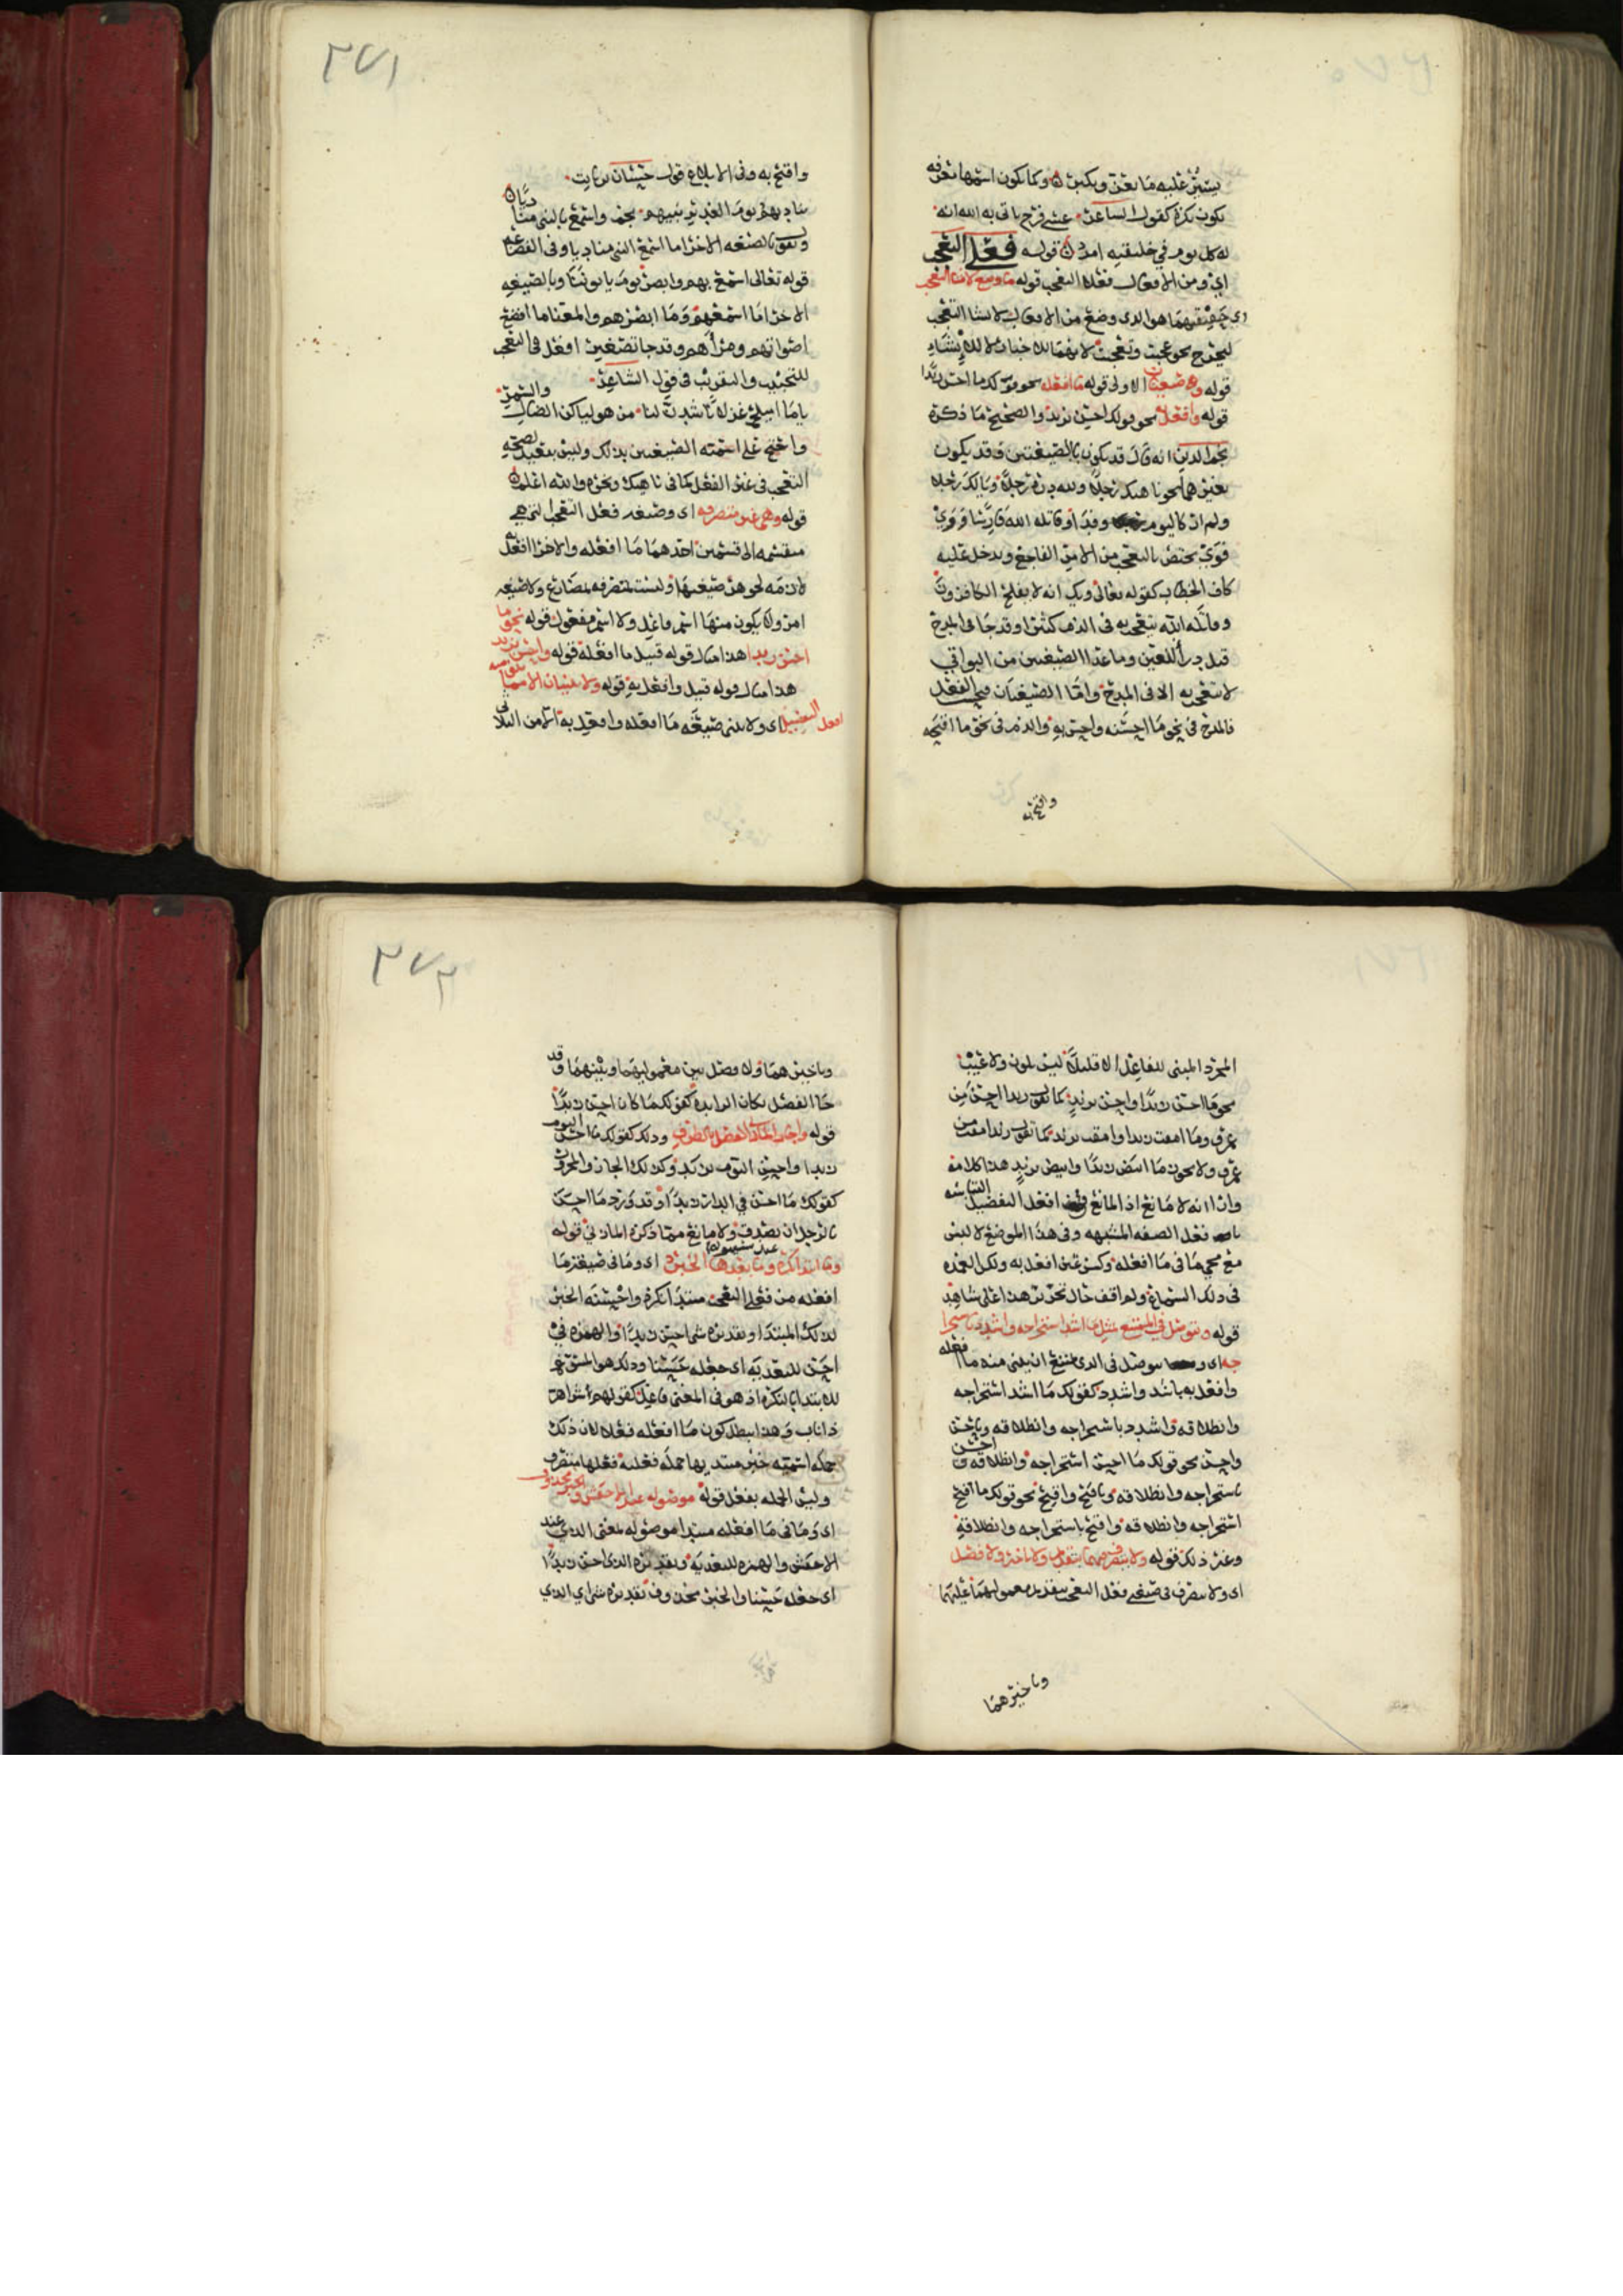 يستبين عليه ما يعن ويكبر وكما يكون اسمها معرفه
يكون نكرة كقول الشاعر عسى فرج ياتي به الله انه
له كل يوم في خليقته امر قوله فعلي التعجب
اي ومن الافعال فعلا التعجب قوله ما وضع لانشا التعجب
اي حقيقتهما هو الذي وضع من الافعال لانشا التعجب
ليخرج نحو عجبت وتعجبت لانهما للاخبار لا للانشاء
قوله وله صيغتان الاولى قوله ما افعله نحو قولك ما احسن زيدا
قوله وافعل به نحو قولك احسن بزيد والصحيح ما ذكره
نجم الدين انه قال قد يكون بالصيغتين وقد يكون
بغيرهما نحو ناهيك رجلا ولله دره رجلا ويا لك رجلا
ولم ار كاليوم وقد او قاتله الله
يختص بالتعجب من الامر الفاجع ويدخل عليه
كاف الخطاب كقوله تعالى ويك انه لا يفلح الكافرون
وقاتله الله يتعجب به في الذم كثيرا وقد جا في المدح
قيل وما عدا الصيغتين من البواقي
لا يتعجب به الا في المدح واما الصيغتان
فالمدح في نحو ما احسنه واحسن به والذم في نحو ما اقبحه
واقبح به
٢٧١
واقبح به وفي الابلاغ قول حسان بن ثابت
يناديهم يوم الغدير نبيهم بخم واسمع بالنبي مناديا
وتقول بالصيغه الاخرى ما اسمع النبي مناديا وفي الفضاعه
قوله تعالى اسمع بهم وابصر يوم ياتوننا وبالصيغه
الاخرى ما اسمعهم وما ابصرهم والمعنى ما افضع
اصواتهم ومراهم وقد جا تصغير افعل في التعجب
للتحبيب والتقريب في قول الشاعر
ياما اميلح غزلانا شدن لنا من هوليائكن الضال والسمر
واحتج على اسميه الصيغتين بذلك وليس ببعيد لصحه
التعجب في غير الفعل كما في ناهيك ونحوه والله اعلم
قوله وهي غير متصرفه اي وصيغه فعل التعجب التي هي
منقسمه الى قسمين احدهما ما افعله والاخر افعل به
لازمه لجوهر صيغتها وليست بمتصرفه لمضارع ولا صيغه
امر ولا يكون منها اسم فاعل ولا اسم مفعول قوله نحو ما
احسن زيدا هذا مثال قوله قبيل ما افعله قوله واحسن بزيد
هذا مثال قوله قبيل وافعل به قوله ولا يبنيان الا مما يبنى منه
افعل التفضيل اي ولا يبنى صيغه ما افعله وافعل به الا من الثلاثي
المجرد المبني للفاعل الا قليلا ليس بلون ولا عيب
نحو ما احسن زيدا واحسن بزيد كما تقول زيد احسن من
عمرو وما امقت زيدا وامقت بزيد كما تقول زيد امقت من
عمرو ولا يجوز ما ابيض زيدا وابيض بزيد هذا كلامه
وارى انه لا مانع اذ المانع في افعل التفضيل التباسه
بافعل الصفه المشبهه وفي هذا الموضع لا لبس
مع مجي ما في ما افعله وكسر عين افعل به ولكن العمده
في ذلك السماع ولم اقف حال تحرير هذا على شاهد
قوله ويتوصل في الممتنع بمثل ما اشد استخراجه واشدد باستخرا
جه اي ويتوصل في الذي يمتنع ان يبنى منه ما افعله
وافعل به باشد واشدد كقولك ما اشد استخراجه
وانطلاقه واشدد باستخراجه وانطلاقه وباحسن
واحسن نحو قولك ما احسن استخراجه وانطلاقه واحسن
باستخراجه وانطلاقه وباقبح واقبح نحو قولك ما اقبح
استخراجه وانطلاقه واقبح باستخراجه وانطلاقه
وغير ذلك قوله ولا يتصرف فيهما بتقديم ولا تاخير ولا فصل
اي ولا يتصرف في صيغتي فعل التعجب بتقديم معمولهما عليهما
وتاخيرهما
٢٧٢
وتاخيرهما ولا فصل بين معموليهما وبينهما وقد
جا الفصل بكان الزايده كقولك ما كان احسن زيدا
قوله واجاز المازني الفصل بالظرف وذلك كقولك ما احسن اليوم
زيدا واحسن اليوم بزيد وكذلك الجار والمجرور
كقولك ما احسن في الدار زيدا وقد ورد ما احسن
بالرجل ان يصدق ولا مانع مما ذكره المازني قوله
وما ابتدا نكره عند سيبويه وما بعدها الخبر اي وما في صيغة ما
افعله من فعلي التعجب مبتدا نكره واحسنه الخبر
لذلك المبتدا وتقديره شي احسن زيدا والهمزه في
احسن للتعديه اي جعله حسنا وذلك هو المسوغ
للابتدا بالنكره اذ هو في المعنى فاعل كقولهم شر اهر
ذا ناب وهذا يبطل كون ما افعله فعلا لان ذلك
جمله اسميه خبر مبتديها جمله فعليه فعلها متصرف
وليس الجمله بفعل قوله موصوله عند الاخفش والخبر محذوف
اي وما في ما افعله مبتدا موصوله بمعنى الذي عند
الاخفش والهمزه للتعديه وتقديره الذي احسن زيدا
اي جعله حسنا والخبر محذوف تقديره شي اي الذي